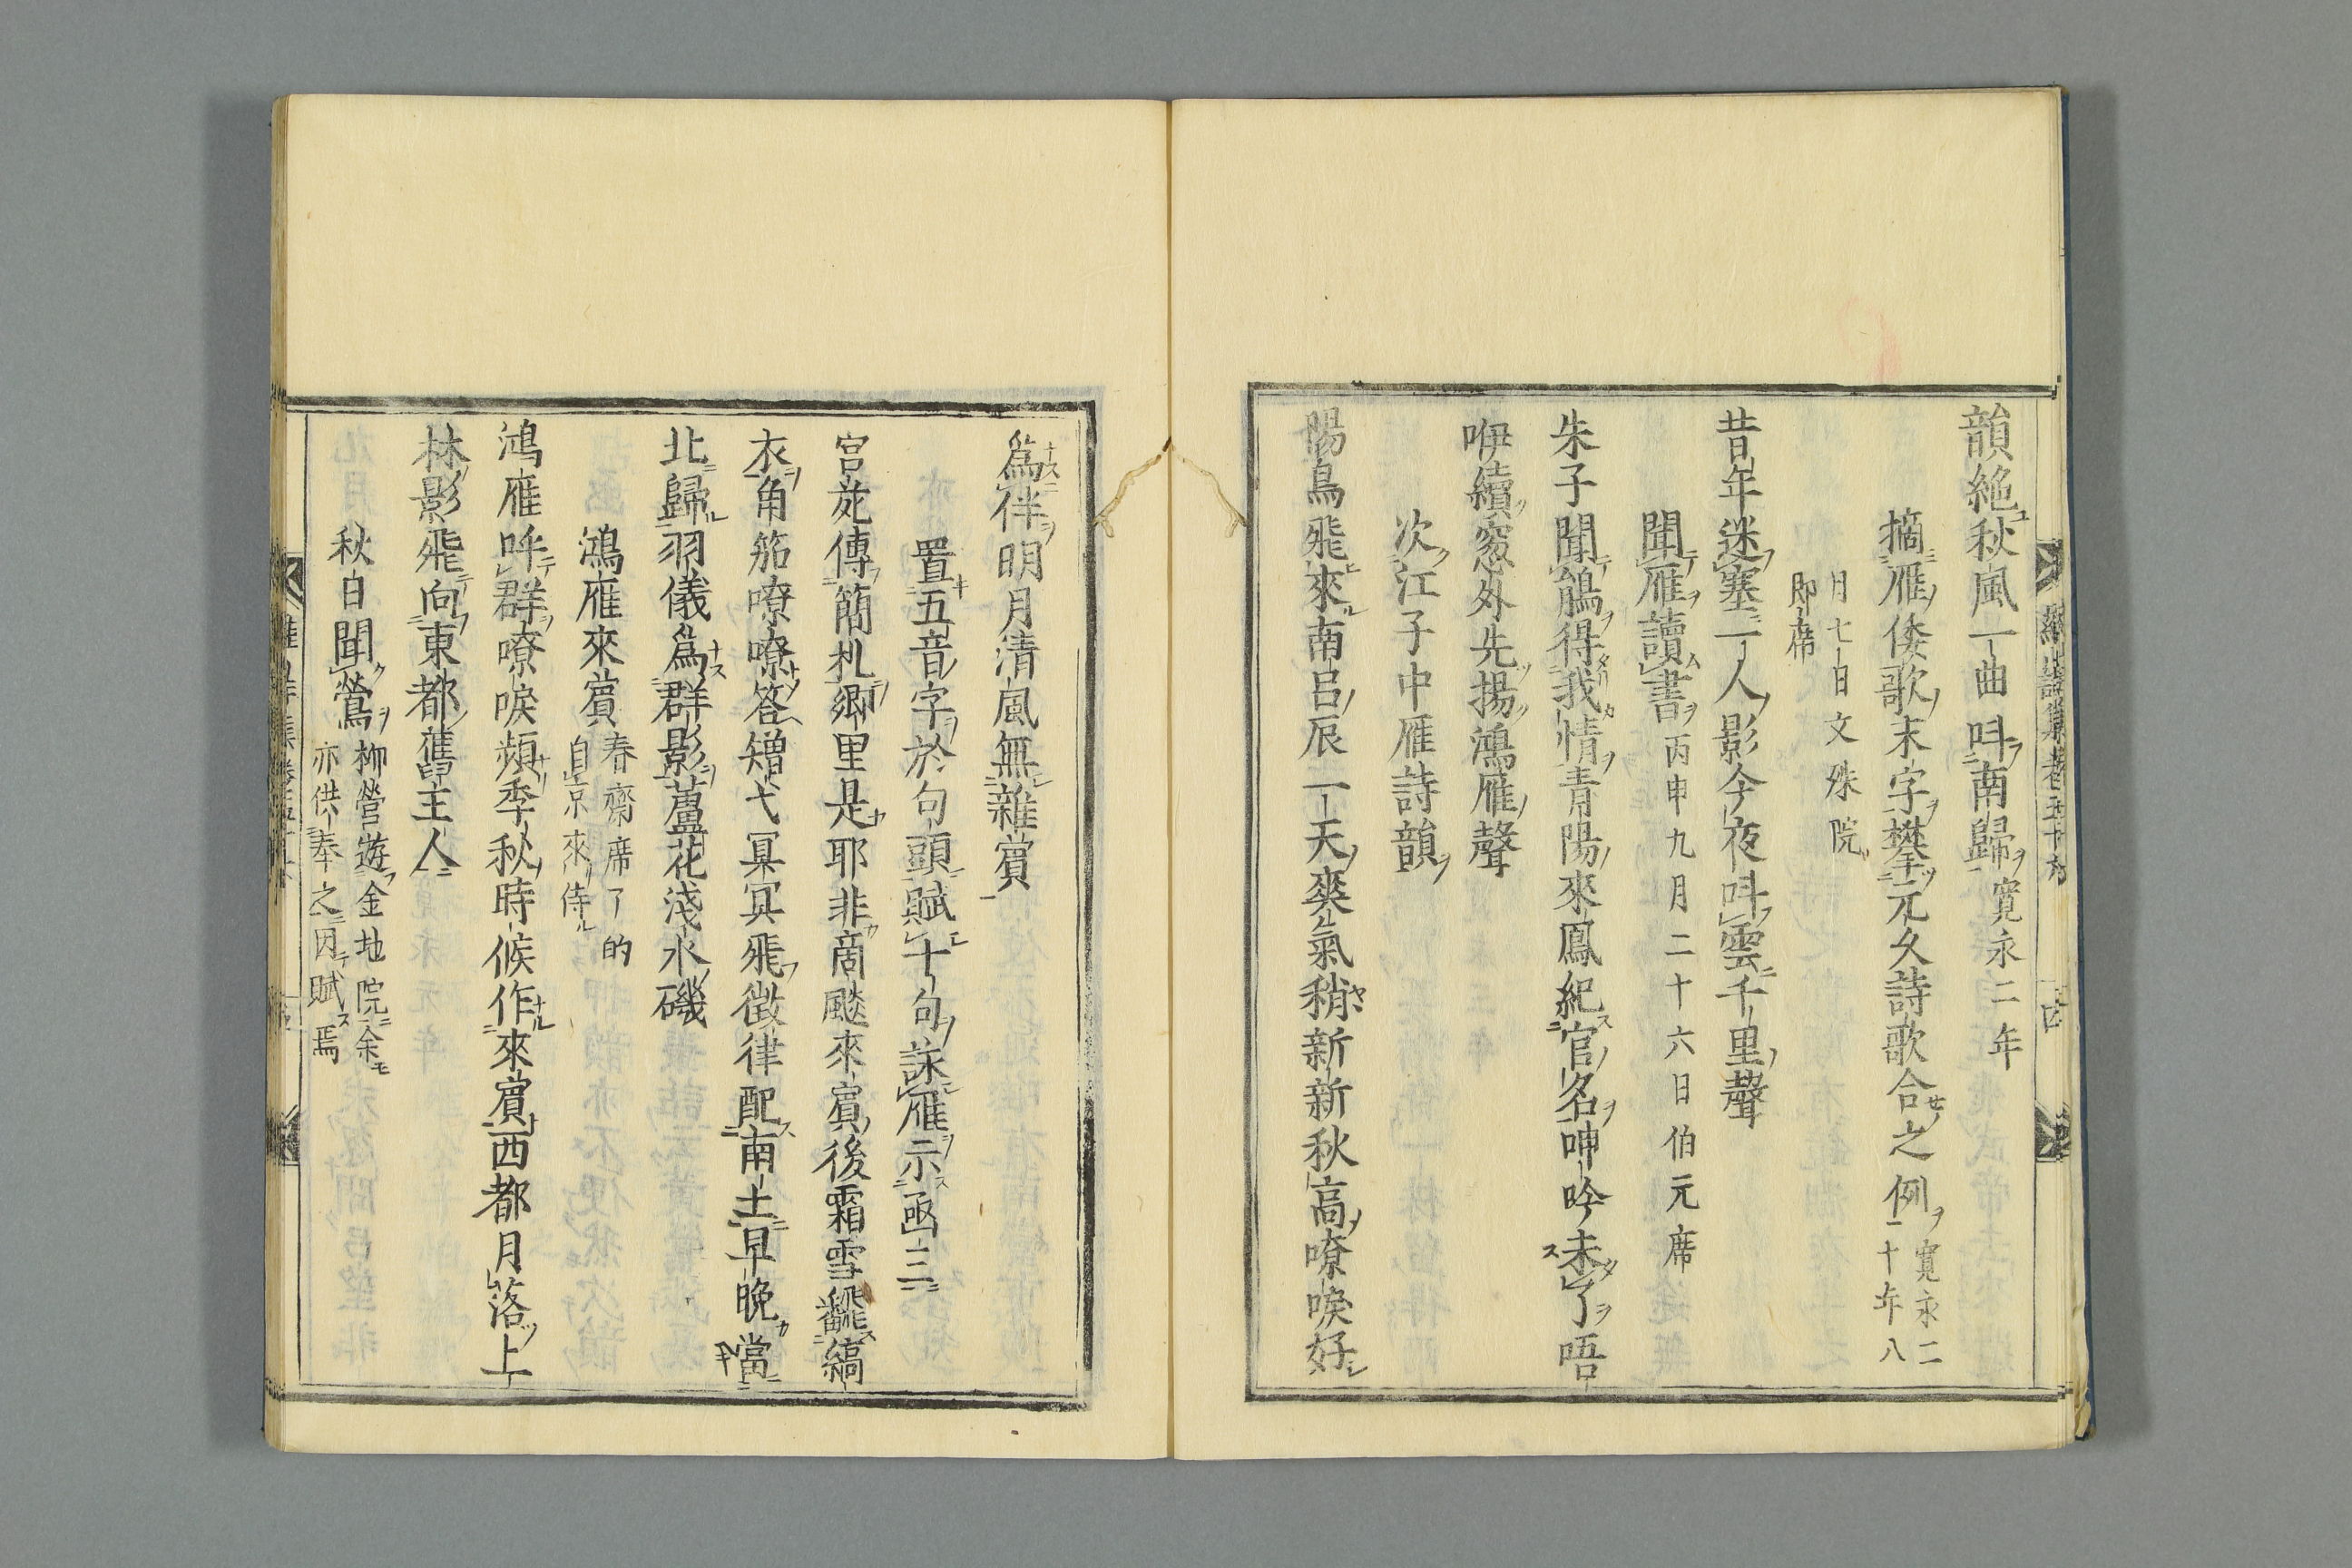 韻絶秋風一曲呌南歸寛永二年
摘雁倭歌末字攀元久詩歌合之例寛永二
十年八
月七日文殊院
即席
昔年迷塞一人影今夜呌雲千里聲
聞雁讀書丙申九月二十六日伯元席
朱子聞鵑得我情青陽來鳳紀官名呻吟未了唔
咿續窓外先揚鴻雁聲
次江子中雁詩韻
陽鳥飛來南呂辰一天爽氣稍新新秋高嘹唳好
爲伴明月清風無雜賓
置五音字於句頭賦十句詠雁示函三
宮旄傳簡札郷里是耶非商飈來賓後霜雪飜縞
衣角笳嘹嘹答矰弋冥冥飛徴律配南土早晩當
北歸羽儀爲群影蘆花淺水磯
鴻雁來賓春齋席了的
自京來侍
鴻雁呼群嘹唳頻季秋時候作來賓西都月落上
林影飛向東都舊主人
秋日聞鶯柳營遊金地院余
亦供奉之因賦焉